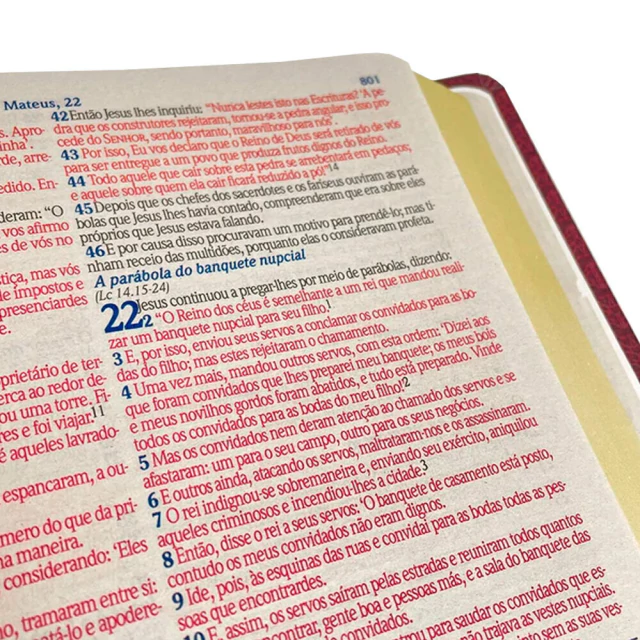 Mateus, 22
801
s. Apro-
inha'.
rde, arre-
edido. En-
deram: “O
vos afirmo
es de vós no
tiça, mas vós
e impostos e
presenciardes
e.
prietário de ter-
erca ao redor de-
ou uma torre. Fi-
res e foi viajar.11
é aqueles lavrado
espancaram, a ou-
mero do que da pri-
na maneira.
considerando: ‘Eles
o, tramaram entre si:
atá-lo e apodere-
42 Então Jesus lhes inquiriu: “Nunca lestes isto nas Escrituras? ‘A pe-
dra que os construtores rejeitaram, tornou-se a pedra angular; e isso pro-
cede do SENHOR, sendo portanto, maravilhoso para nós’.
43 Por isso, Eu vos declaro que o Reino de Deus será retirado de vós
para ser entregue a um povo que produza frutos dignos do Reino.
44 Todo aquele que cair sobre esta pedra se arrebentará em pedaços;
e aquele sobre quem ela cair ficará reduzido a pó!”14
45 Depois que os chefes dos sacerdotes e os fariseus ouviram as pará-
bolas que Jesus lhes havia contado, compreenderam que era sobre eles
próprios que Jesus estava falando.
46 E por causa disso procuravam um motivo para prendê-lo; mas ti-
nham receio das multidões, porquanto elas o consideravam profeta.
A parábola do banquete nupcial
(Lc 14.15-24)
22 Jesus continuou a pregar-lhes por meio de parábolas, dizendo:
2 “O Reino dos céus é semelhante a um rei que mandou reali-
zar um banquete nupcial para seu filho.1
3 E, por isso, enviou seus servos a conclamar os convidados para as bo-
das do filho; mas estes rejeitaram o chamamento.
4 Uma vez mais, mandou outros servos, com esta ordem: ‘Dizei aos
que foram convidados que lhes preparei meu banquete; os meus bois
e meus novilhos gordos foram abatidos, e tudo está preparado. Vinde
todos os convidados para as bodas do meu filho!’2
5 Mas os convidados nem deram atenção ao chamado dos servos e se
afastaram: um para o seu campo, outro para os seus negócios.
6 E outros ainda, atacando os servos, maltrataram-nos e os assassinaram.
7 O rei indignou-se sobremaneira e, enviando seu exército, aniquilou
aqueles criminosos e incendiou-lhes a cidade.3
8 Então, disse o rei a seus servos: ‘O banquete de casamento está posto,
contudo os meus convidados não eram dignos.
9 Ide, pois, às esquinas das ruas e convidai para as bodas todas as pes-
soas que encontrardes.
10 E, assim, os servos saíram pelas estradas e reuniram todos quantos
contrar, gente boa e pessoas más, e a sala do banquete das
convidados.
trou para saudar os convidados que es-
não trajava as vestes nupciais.
as suas ves-